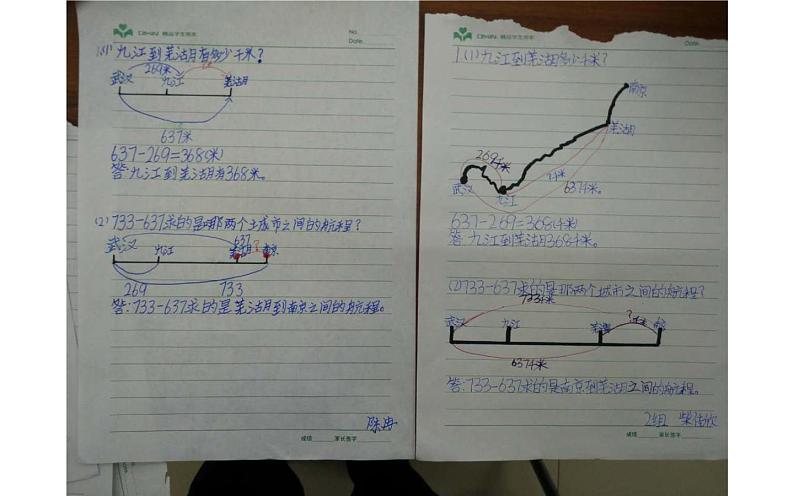 精品学生用本
No.
Date.
(1)九江到芜湖有多少千米?
269米
武汉 九江 芜湖
637米
637-269=368(米)
答:九江到芜湖有368米。
(2)733-637求的是哪两个城市之间的航程?
637
武汉 九江 芜湖 ? 南京
269 733
答:733-637求的是芜湖到南京之间的航程。
成绩 家长签字
精品学生用本
No.
Date.
1.(1)九江到芜湖多少千米?
南京
芜湖
269千米
?千米
武汉
九江
637千米
637-269=368(千米)
答:九江到芜湖368千米。
(2)733-637求的是哪两个城市之间的航程?
733千米
武汉 九江 芜湖 ?千米 南京
637千米
答:733-637求的是南京到芜湖之间的航程。
2组
成绩 家长签字